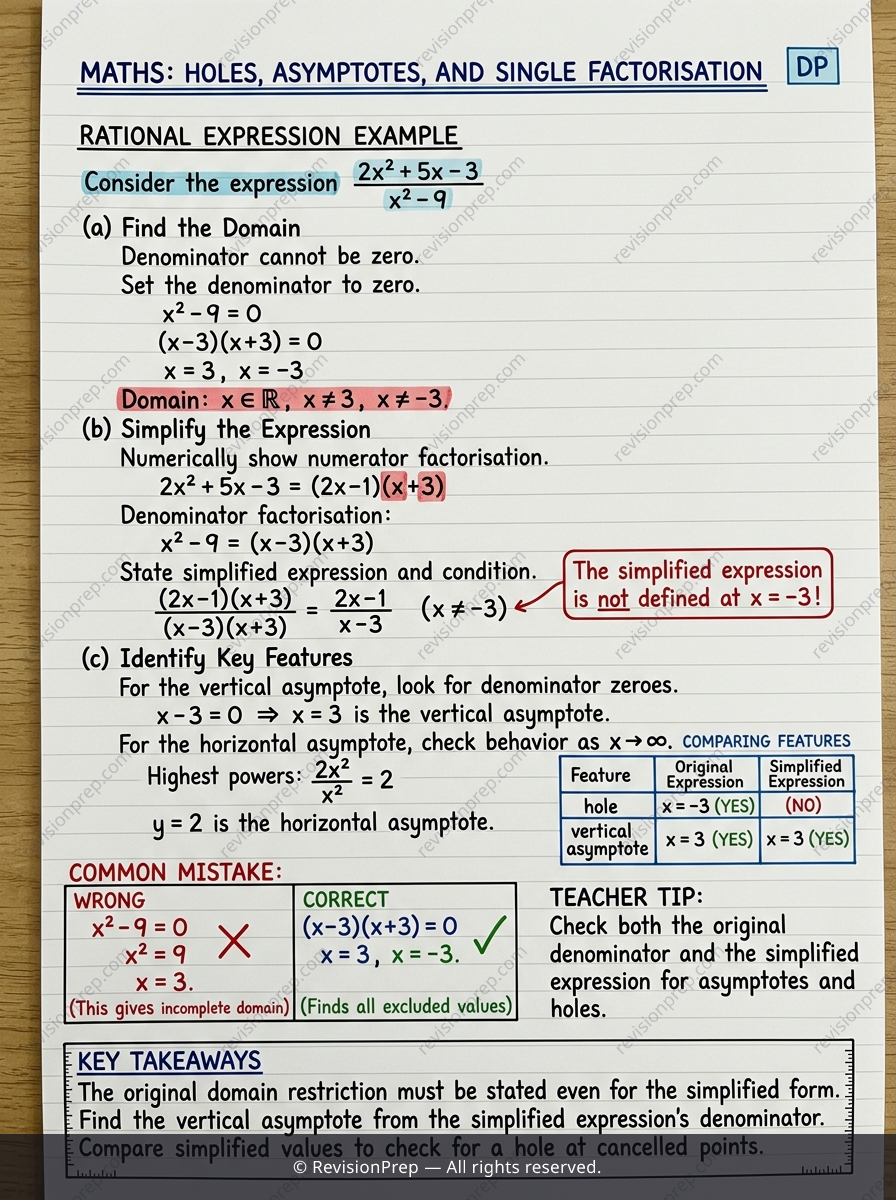 MATHS: HOLES, ASYMPTOTES, AND SINGLE FACTORISATION
DP
RATIONAL EXPRESSION EXAMPLE
Consider the expression (2x² + 5x − 3)/(x² − 9)
(a) Find the Domain
Denominator cannot be zero.
Set the denominator to zero.
x² − 9 = 0
(x−3)(x+3) = 0
x = 3, x = −3
Domain: x ∈ ℝ, x ≠ 3, x ≠ −3.
(b) Simplify the Expression
Numerically show numerator factorisation.
2x² + 5x − 3 = (2x−1)(x+3)
Denominator factorisation:
x² − 9 = (x−3)(x+3)
State simplified expression and condition.
(2x−1)(x+3)/(x−3)(x+3) = (2x−1)/(x−3) (x ≠ −3)
The simplified expression
is not defined at x = −3!
(c) Identify Key Features
For the vertical asymptote, look for denominator zeroes.
x−3 = 0 ⇒ x = 3 is the vertical asymptote.
For the horizontal asymptote, check behavior as x → ∞.
Highest powers: 2x²/x² = 2
y = 2 is the horizontal asymptote.
COMPARING FEATURES
Feature Original Expression Simplified Expression
hole x = −3 (YES) (NO)
vertical asymptote x = 3 (YES) x = 3 (YES)
COMMON MISTAKE:
WRONG
x² − 9 = 0
x² = 9
x = 3.
(This gives incomplete domain)
CORRECT
(x−3)(x+3) = 0
x = 3, x = −3.
(Finds all excluded values)
TEACHER TIP:
Check both the original
denominator and the simplified
expression for asymptotes and
holes.
KEY TAKEAWAYS
The original domain restriction must be stated even for the simplified form.
Find the vertical asymptote from the simplified expression's denominator.
Compare simplified values to check for a hole at cancelled points.
© RevisionPrep — All rights reserved.
revisionprep.com